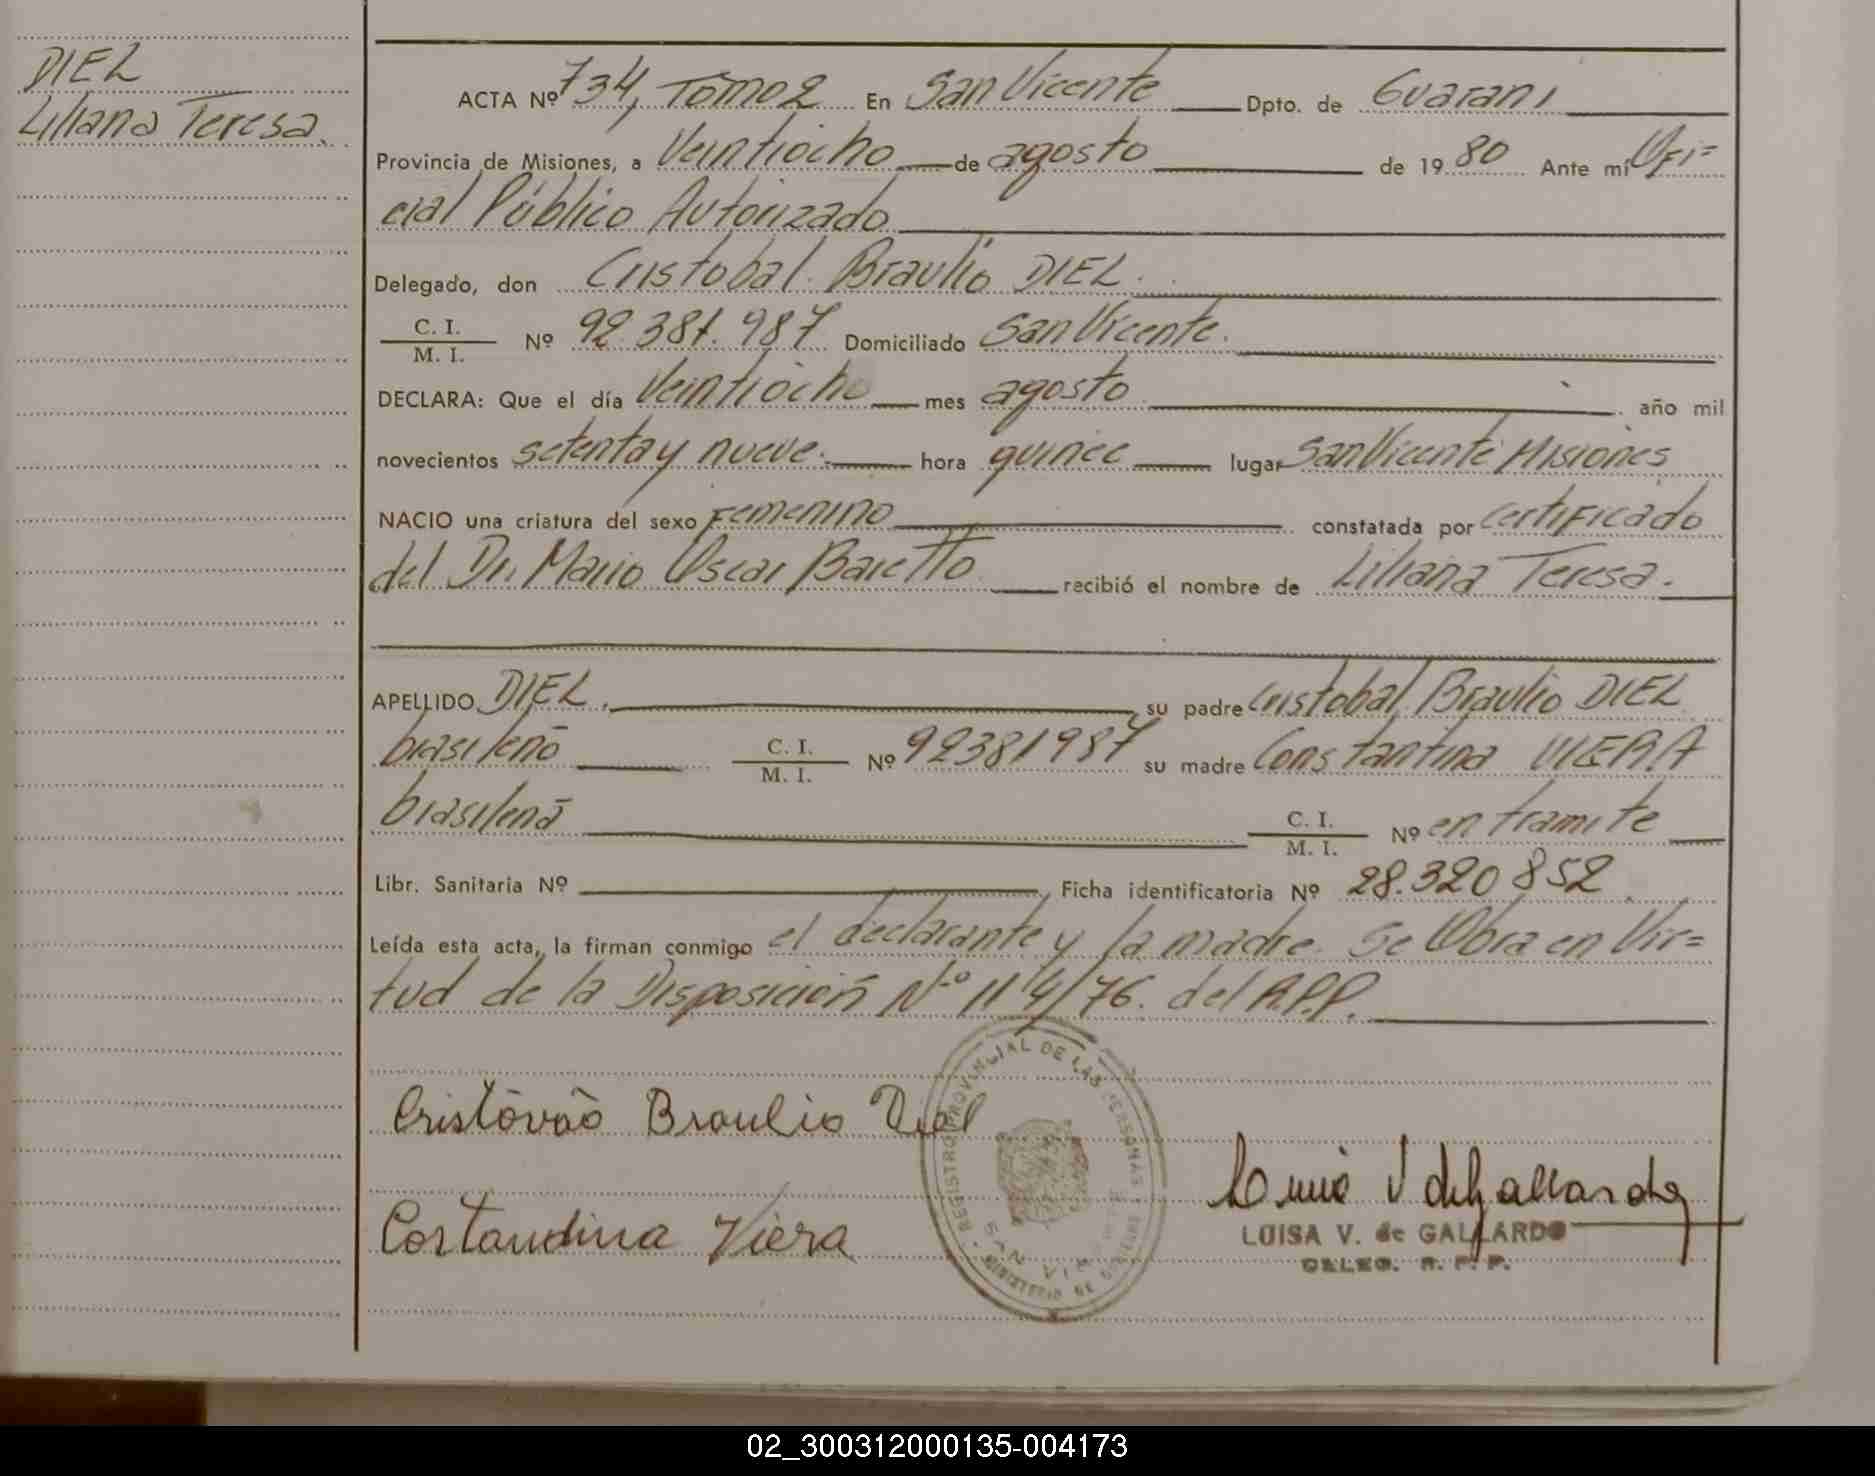 DIEL
Liliana Teresa.
ACTA Nº 734, Tomo 2 En San Vicente Dpto. de Guaraní
Provincia de Misiones, a Veintiocho de agosto de 1980 Ante mí Ofi=
cial Público Autorizado
Delegado, don Cristobal Braulio DIEL.
C. I.
M. I.
Nº 92.381.987 Domiciliado San Vicente.
DECLARA: Que el día Veintiocho mes agosto año mil
novecientos setenta y nueve. hora quince lugar San Vicente Misiones
NACIO una criatura del sexo Femenino constatada por certificado
del Dr. Mario Oscar Baretto recibió el nombre de Liliana Teresa.
APELLIDO DIEL. su padre Cristobal Braulio DIEL
brasileño C. I.
M. I.
Nº 92381987 su madre Constantina VIERA
brasileña C. I.
M. I.
Nº en tramite
Libr. Sanitaria Nº Ficha identificatoria Nº 28.320852
Leída esta acta, la firman conmigo el declarante y la madre. Se Obra en Vir=
tud de la Disposición Nº 114/76. del R.P.P.
REGISTRO PROVINCIAL DE LAS PERSONAS
SAN VICENTE
Cristóvão Braulio Diel
Costandina Viera
LUISA V. de GALLARDO
DELEG. R. P. P.
02_300312000135-004173